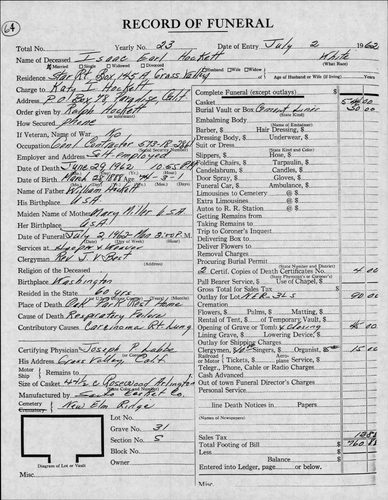 64
RECORD OF FUNERAL
Total No. Yearly No. 23 Date of Entry July 2 1962
Name of Deceased Isaac Earl Hockett White
Married Single Widowed Divorced (What Race)
Residence Star Rt. Box 145A Grass Valley Husband Wife Widow
Age of Husband or Wife (if living)
Charge to Katy I. Hockett
Address P.O. Box 78 Paradise Calif.
Order given by Ralph Hockett
How Secured Phone
If Veteran, of War No
(State War)
Occupation Genl Contractor 573-18-
(Social Security Number)
Employer and Address Self employed
Date of Death June 29, 1962 10:55 PM
Date of Birth March 28, 1888 Age 74-3-1
Name of Father William Hockett
His Birthplace USA
Maiden Name of Mother Mary Miller USA
Her Birthplace USA
Date of Funeral July 2, 1962 Mon. 3:00 P.M.
Services at Hooper & Weaver
Clergyman Rev. J. V. Best
Religion of the Deceased
Birthplace Washington
Resided in the State 60 yrs.
(Years) (Months)
Place of Death Oak Park Rest Home
Cause of Death Respiratory Failure
Contributory Causes Carcinoma Rt. Lung
Certifying Physician Joseph P. Labbe
(or Coroner)
His Address Grass Valley, Calif.
Motor
Ship Remains to
Size of Casket Rosewood Arlington
Manufactured by Casket Co.
Cemetery
Crematory New Elm Ridge
Lot No.
Grave No. 31
Section No. S
Block No.
Owner
Diagram of Lot or Vault
Complete Funeral (except outlays) $
Casket
Burial Vault or Box Cement Liner 50.00
(State Kind)
Embalming Body
(Name of Embalmer)
Barber, $ Hair Dressing, $
Dressing Body, $ Underwear, $
Suit or Dress
(State Kind and Color)
Slippers, $ Hose, $
Folding Chairs, $ Tarpaulin, $
Candelabrum, $ Candles, $
Door Spray, $ Gloves, $
Funeral Car, $ Ambulance, $
Limousines to Cemetery @ $
Extra Limousines @ $
Autos to R. R. Station @ $
Getting Remains
Taking Remains
Trip to Coroner's Inquest
Delivering Box to
Deliver Flowers to
Removal Charges
Procuring Burial Permit
(State Signer and District)
2 Certif. Copies of Death Certificates 4.00
Pall Bearer Service, $ Use of Chapel, $
Gross Total for Sales Tax $
Outlay for Lot NER 31 S 90.00
Cremation
Flowers, $ Palms, $ Matting, $
Rental of Tent, $ of Temporary Vault, $
Opening of Grave or Tomb & closing 45.00
Lining Grave, $ Lowering Device, $
Outlay for Shipping Charges
Clergymen, Singers, $ Organist, 15.00
Telegr., Phone, Cable or Radio Charges
Cash Advanced
Out of town Funeral Director's Charges
Personal Service
line Death Notices in Papers.
(Names of Newspapers)
Sales Tax
Total Footing of Bill $
Less
Balance $
Entered into Ledger, page or below.